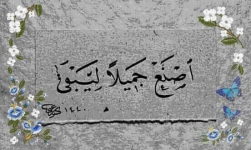 ٱصْنَعْ جَمِيلًا لِيَبْقَىٰ
١٤٤٠ ھ